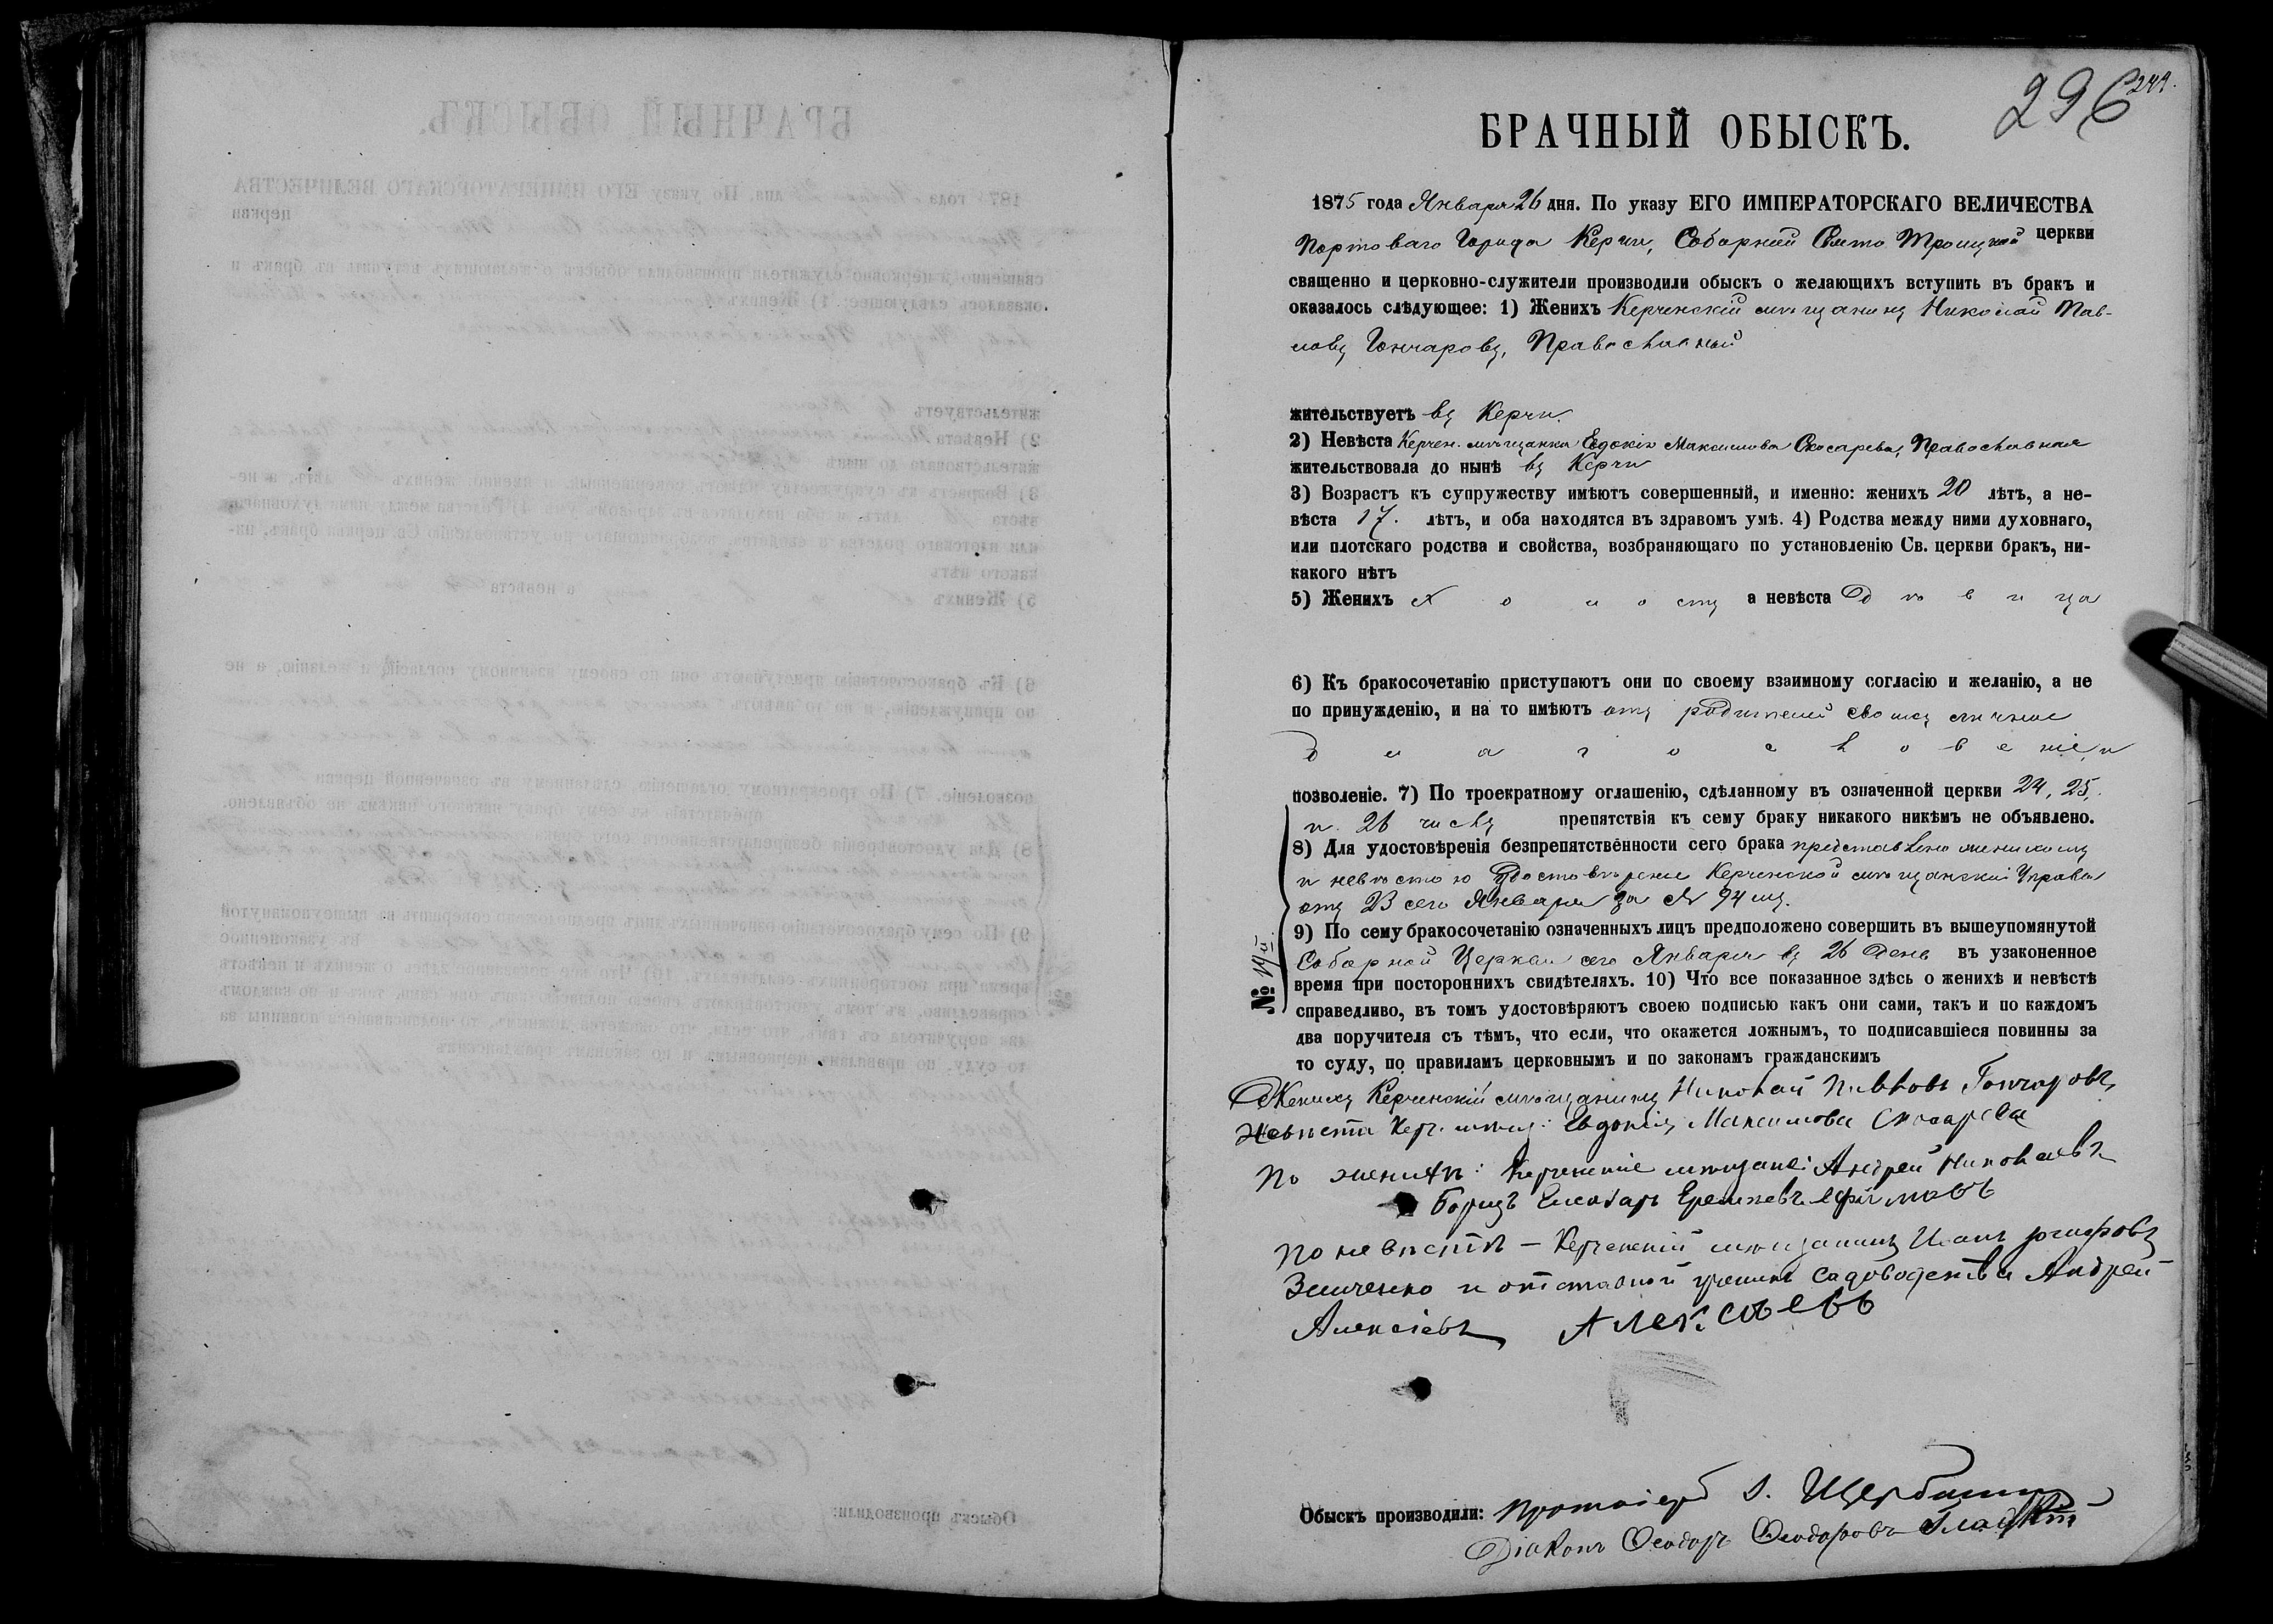 296
244.
БРАЧНЫЙ ОБЫСКЪ.
1875 года Января 26 дня. По указу ЕГО ИМПЕРАТОРСКАГО ВЕЛИЧЕСТВА
Портоваго Города Керчи, Соборной Свято Троицкой церкви
священно и церковно-служители производили обыскъ о желающихъ вступить въ бракъ и
оказалось слѣдующее: 1) Женихъ Керченскій мѣщанинъ Николай Пав-
ловъ Гончаровъ, Православный
жительствуетъ въ Керчи.
2) Невѣста Керчен. мѣщанка Евдокія Максимова Скосарева, Православная
жительствовала до нынѣ въ Керчи
3) Возрастъ къ супружеству имѣютъ совершенный, и именно: женихъ 20 лѣтъ, а не-
вѣста 17. лѣтъ, и оба находятся въ здравомъ умѣ. 4) Родства между ними духовнаго,
или плотскаго родства и свойства, возбраняющаго по установленію Св. церкви бракъ, ни-
какого нѣтъ
5) Женихъ Холостъ а невѣста Дѣвица
6) Къ бракосочетанію приступаютъ они по своему взаимному согласію и желанію, а не
по принужденію, и на то имѣютъ отъ родителей своихъ личное
благословеніе, и
позволеніе. 7) По троекратному оглашенію, сдѣланному въ означенной церкви 24, 25,
и 26 числъ препятствія къ сему браку никакого никѣмъ не объявлено.
8) Для удостовѣренія безпрепятственности сего брака представлено женихомъ
и невѣстою Удостовѣреніе Керченской мѣщанской Управы
отъ 23 сего Января за № 94мъ.
9) По сему бракосочетанію означенныхъ лицъ предположено совершить въ вышеупомянутой
Соборной Церкви сего Января въ 26 день въ узаконенное
время при постороннихъ свидѣтеляхъ. 10) Что все показанное здѣсь о женихѣ и невѣстѣ
справедливо, въ томъ удостовѣряютъ своею подписью какъ они сами, такъ и по каждомъ
два поручителя съ тѣмъ, что если, что окажется ложнымъ, то подписавшіеся повинны за
то суду, по правиламъ церковнымъ и по законамъ гражданскимъ
№ 19й.
Женихъ Керченскій мѣщанинъ Николай Павловъ Гончаровъ,
Невѣста Керч. мѣщ: Евдокія Максимова Скосарева
По женихѣ: Керченскіе мѣщане: Андрей Николаевъ
Борцъ Ефимовъ
По невѣстѣ — Керченскій мѣщанинъ Иванъ
Зинченко и отставной ученикъ садоводства Андрей
Алексіевъ Алексѣевъ
Обыскъ производили: Протоіерей І. Щербинин
Діаконъ Ѳеодоръ Ѳеодоровъ Гладкій